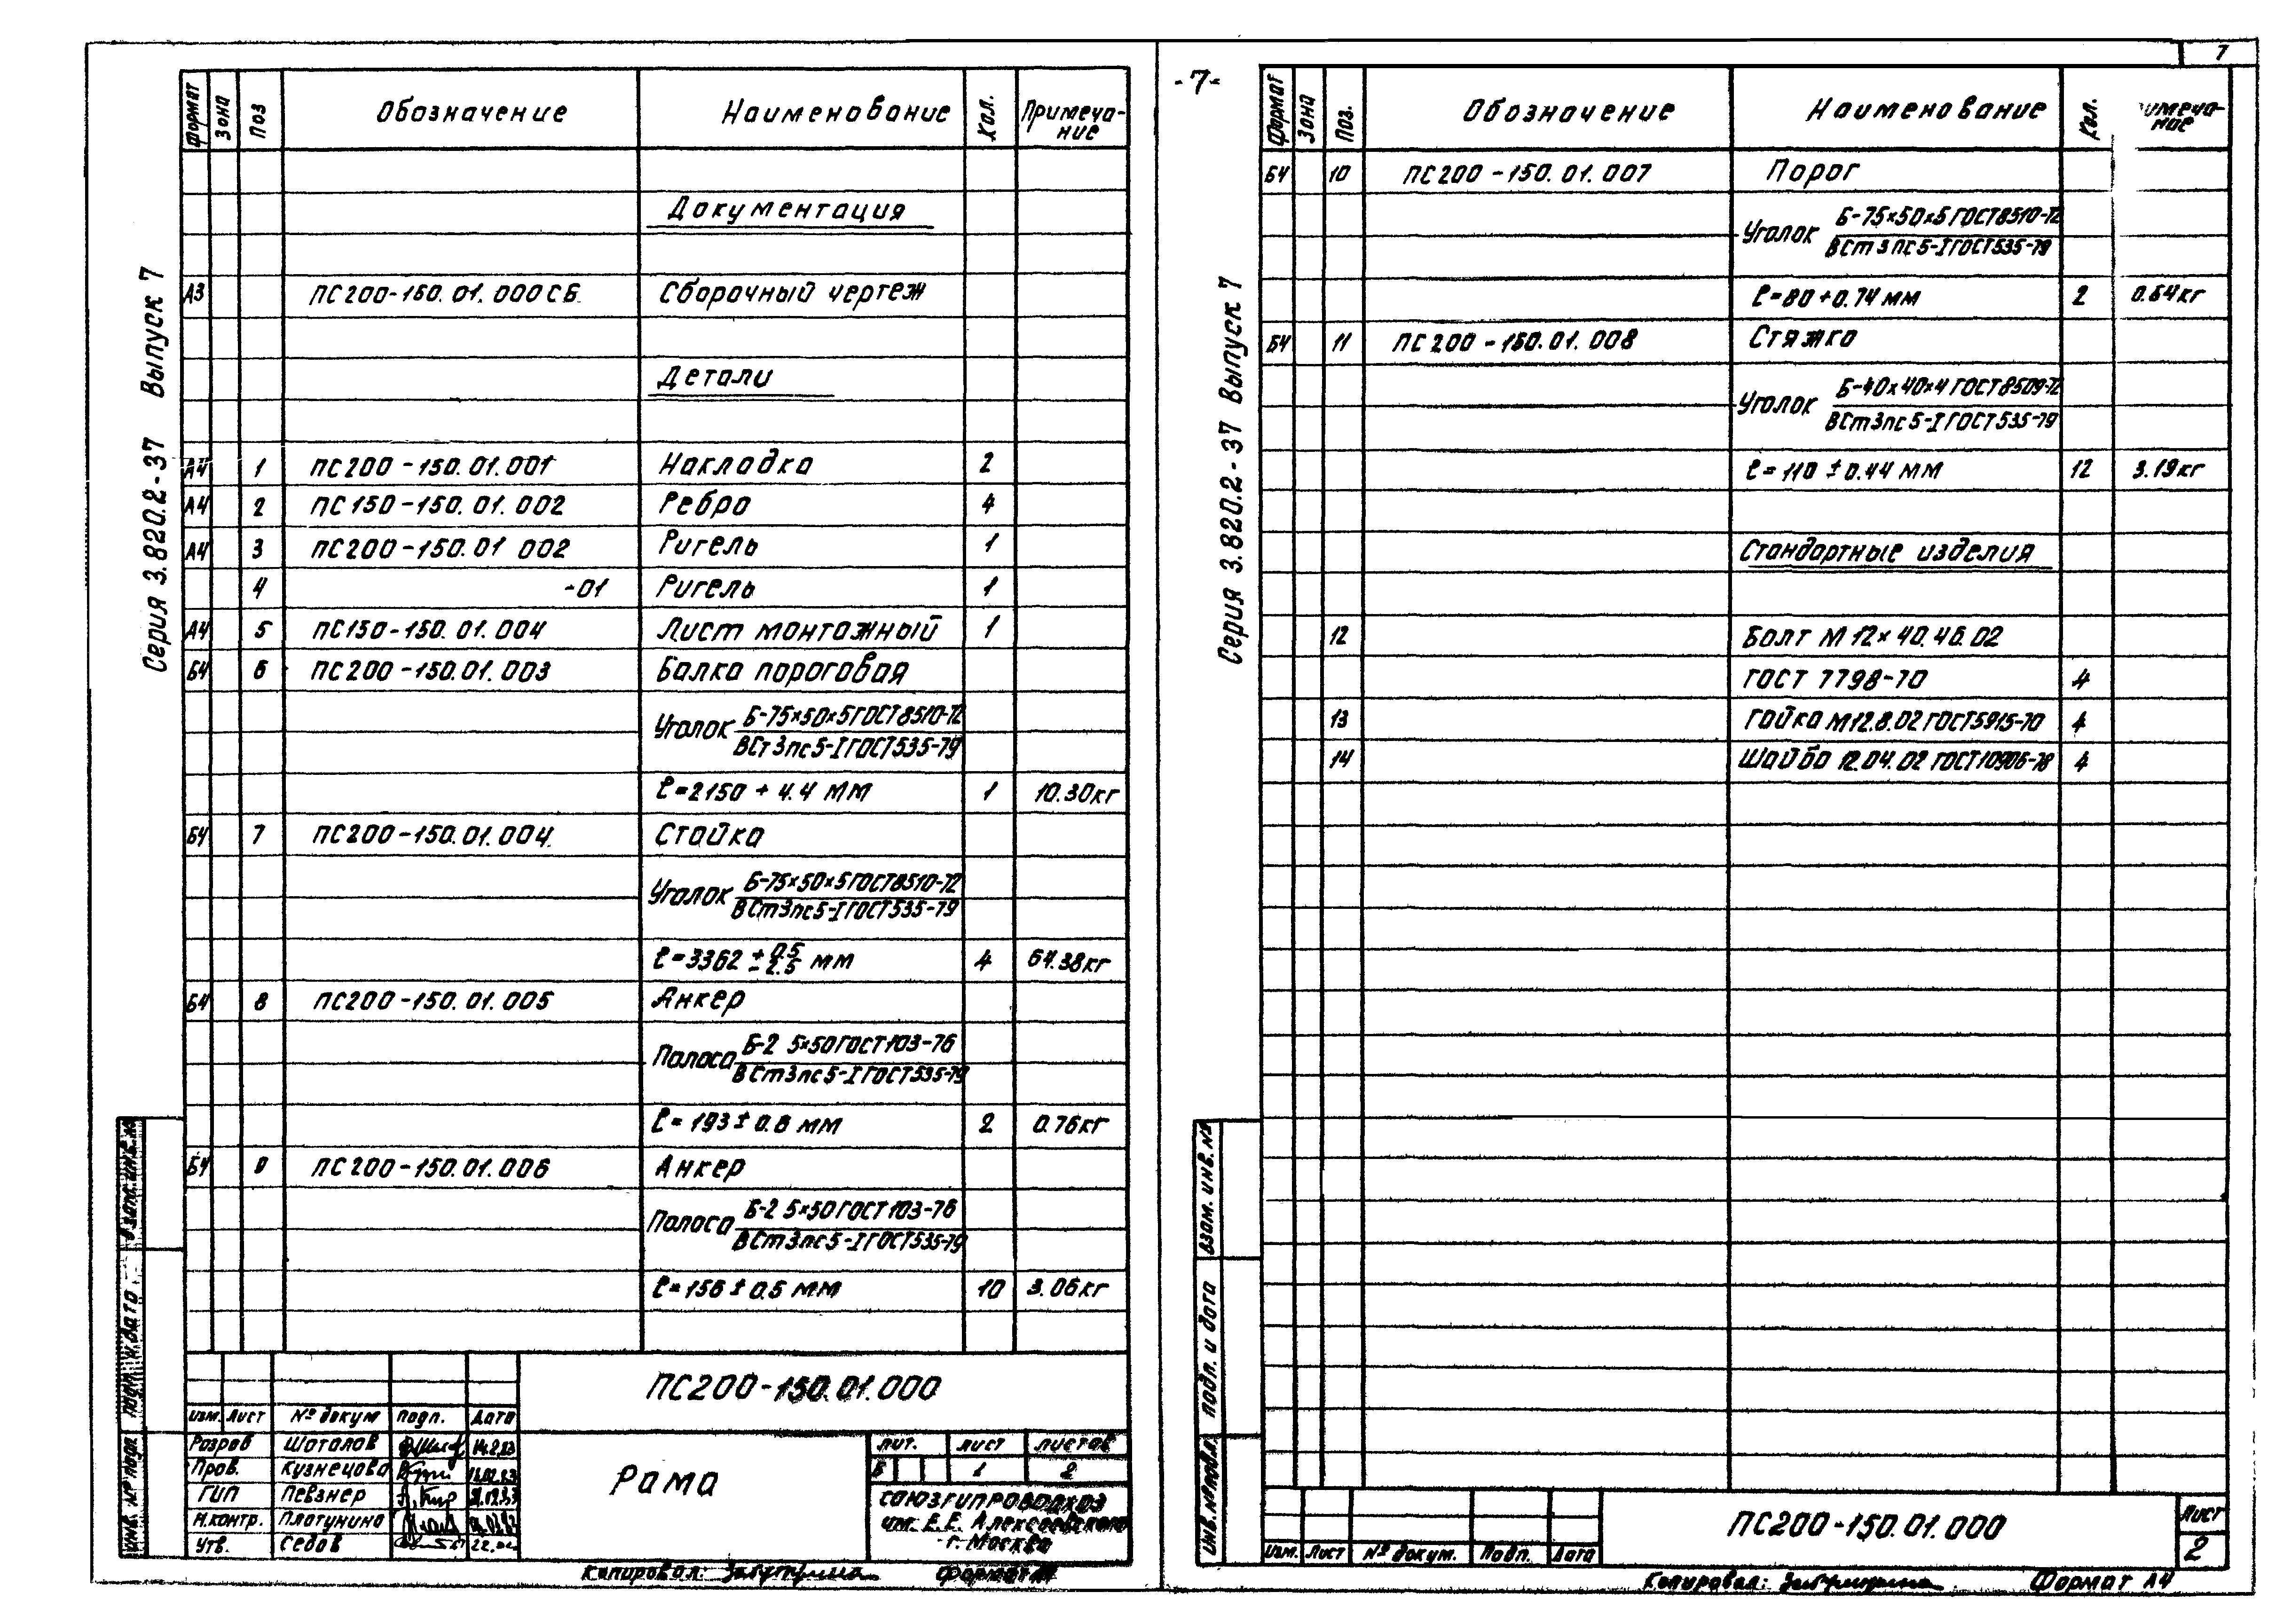 7
-7-
Серия 3.820.2-37 Выпуск 7
Формат Зона Поз Обозначение Наименование Кол. Примечание
Документация
А3 ПС200-150.01.000СБ Сборочный чертеж
Детали
А4 1 ПС200-150.01.001 Накладка 2
А4 2 ПС150-150.01.002 Ребро 4
А4 3 ПС200-150.01 002 Ригель 1
4 -01 Ригель 1
А4 5 ПС150-150.01.004 Лист монтажный 1
Б4 6 ПС200-150.01.003 Балка пороговая
Уголок Б-75×50×5 ГОСТ 8510-72
ВСт3пс5-I ГОСТ 535-79
ℓ=2150 + 4.4 мм 1 10.30кг
Б4 7 ПС200-150.01.004 Стойка
Уголок Б-75×50×5 ГОСТ 8510-72
ВСт3пс5-I ГОСТ 535-79
ℓ=3362 +0.5 -2.5 мм 4 64.38кг
Б4 8 ПС200-150.01.005 Анкер
Полоса Б-2 5×50 ГОСТ 103-76
ВСт3пс5-I ГОСТ 535-79
ℓ=193 ± 0.8 мм 2 0.76кг
Б4 9 ПС200-150.01.006 Анкер
Полоса Б-2 5×50 ГОСТ 103-76
ВСт3пс5-I ГОСТ 535-79
ℓ=156 ± 0.5 мм 10 3.06кг
ПС200-150.01.000
Изм. Лист № докум Подп. Дата
Разраб Шаталов 14.2.83
Пров. Кузнецова
ГИП Певзнер
Н.контр. Платунина
Утв. Седов
Рама
Лит. Лист Листов
1 2
СОЮЗГИПРОВОДХОЗ
им. Е.Е. Алексеевского
г. Москва
Копировал: Формат А4
Инв. № подл. Подп. и дата Взам. инв. №
Серия 3.820.2-37 Выпуск 7
Формат Зона Поз. Обозначение Наименование Кол. имечание
Б4 10 ПС200-150.01.007 Порог
Уголок Б-75×50×5 ГОСТ 8510-72
ВСт3пс5-I ГОСТ 535-79
ℓ=80+0.74 мм 2 0.64кг
Б4 11 ПС200-150.01.008 Стяжка
Уголок Б-40×40×4 ГОСТ 8509-72
ВСт3пс5-I ГОСТ 535-79
ℓ=110 ± 0.44 мм 12 3.19кг
Стандартные изделия
12 Болт М12×40.46.02
ГОСТ 7798-70 4
13 Гайка М12.8.02 ГОСТ 5915-70 4
14 Шайба 12.04.02 ГОСТ 10906-78 4
Инв. № подл. Подп. и дата Взам. инв. №
ПС200-150.01.000
Лист
2
Изм. Лист № докум. Подп. Дата
Копировал: Формат А4